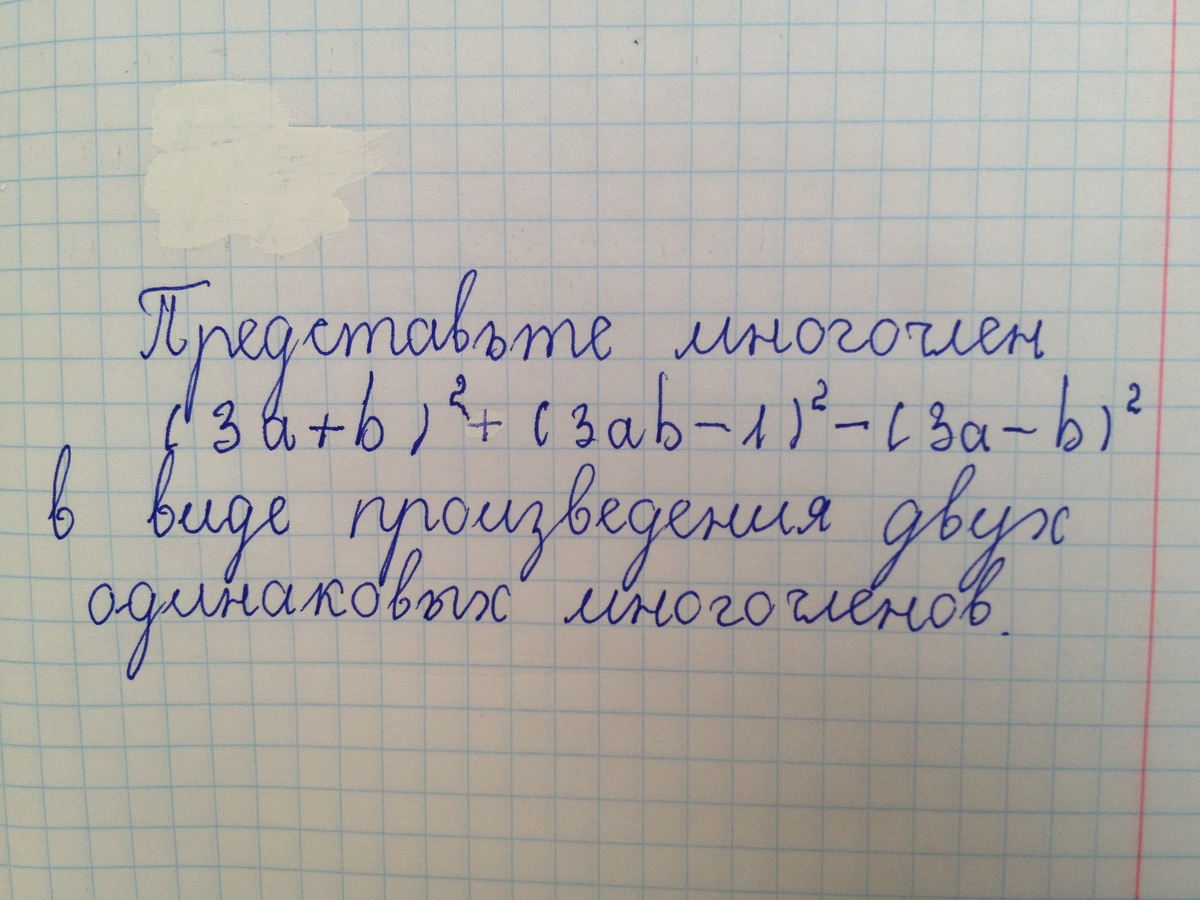 Представьте многочлен
(3a+b)²+(3ab-1)²-(3a-b)²
в виде произведения двух
одинаковых многочленов.